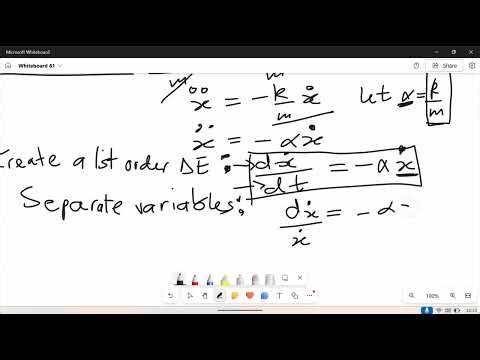 Microsoft Whiteboard
Whiteboard 61
m m
ẍ = -k/m ẋ let α = k/m
ẍ = -αẋ
Create a 1st order DE : dẋ/dt = -αẋ
Separate variables: dẋ/ẋ = -α
100%